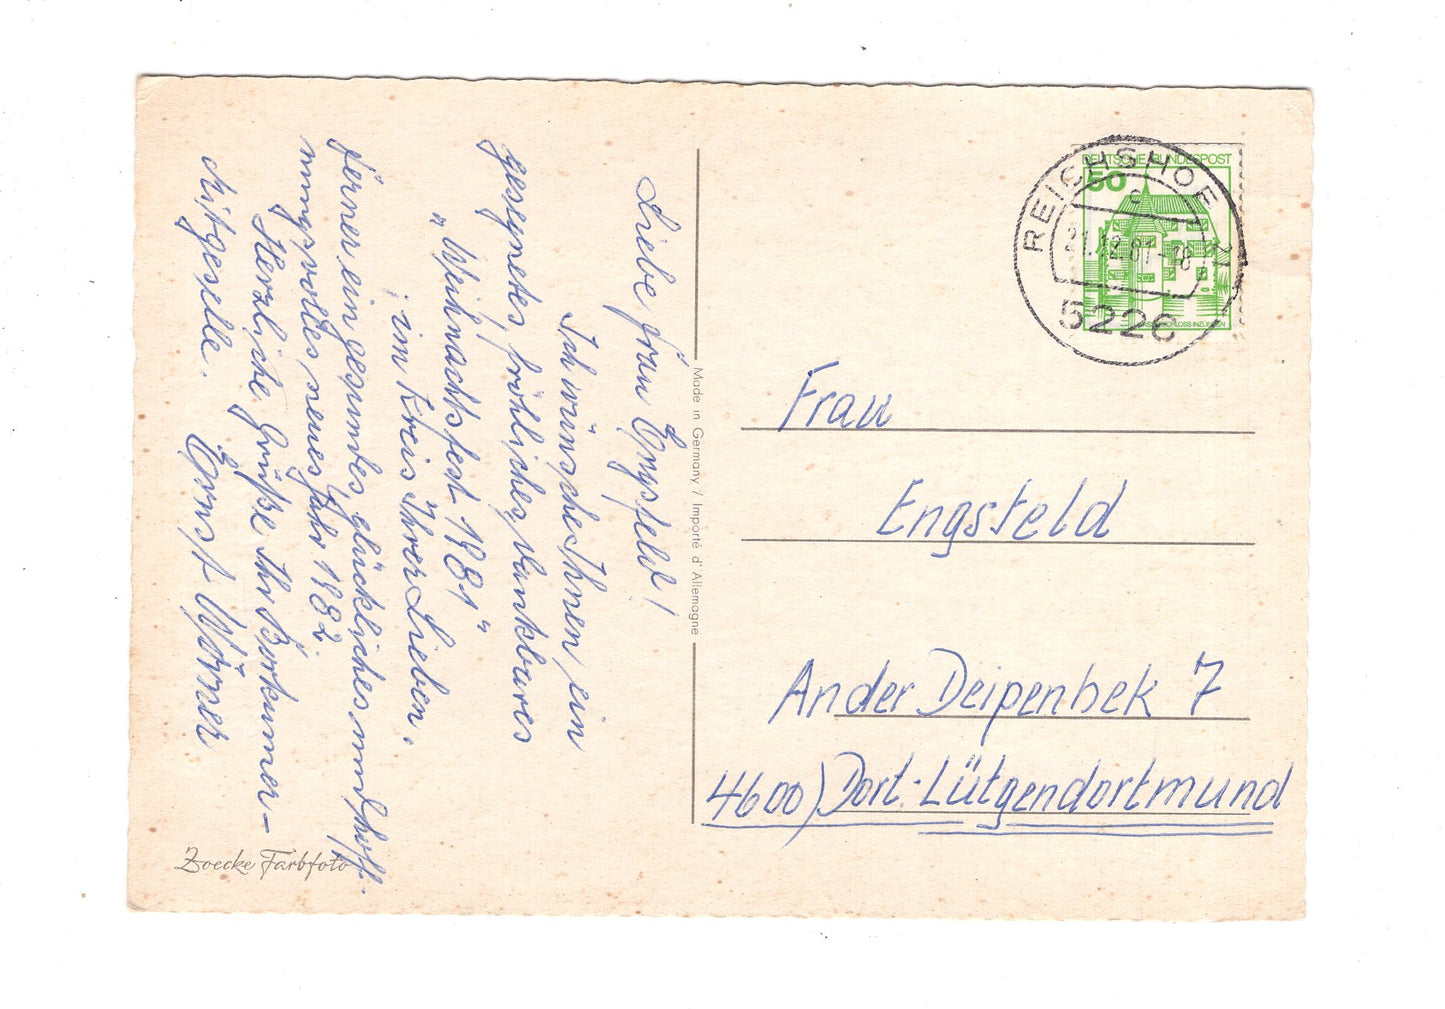 Liebe Frau Engsfeld!
Ich wünsche Ihnen, ein
gesegnetes, fröhliches, dankbares
„Weihnachtsfest 1981“
im Kreis Ihrer Lieben.
ferner ein gesundes, glückliches und hoff-
nungsvolles, neues Jahr 1982.
Herzliche Grüße Ihr Borkumer-
Mitgeselle. Ernst Wörner
Zoecke Farbfoto
Made in Germany / Importé d'Allemagne
DEUTSCHE BUNDESPOST
50
WASSERSCHLOSS INZLINGEN
REICHSHOF
c
21.12.81-18
5226
Frau
Engsfeld
An der Deipenbek 7
4600) Dort.-Lütgendortmund